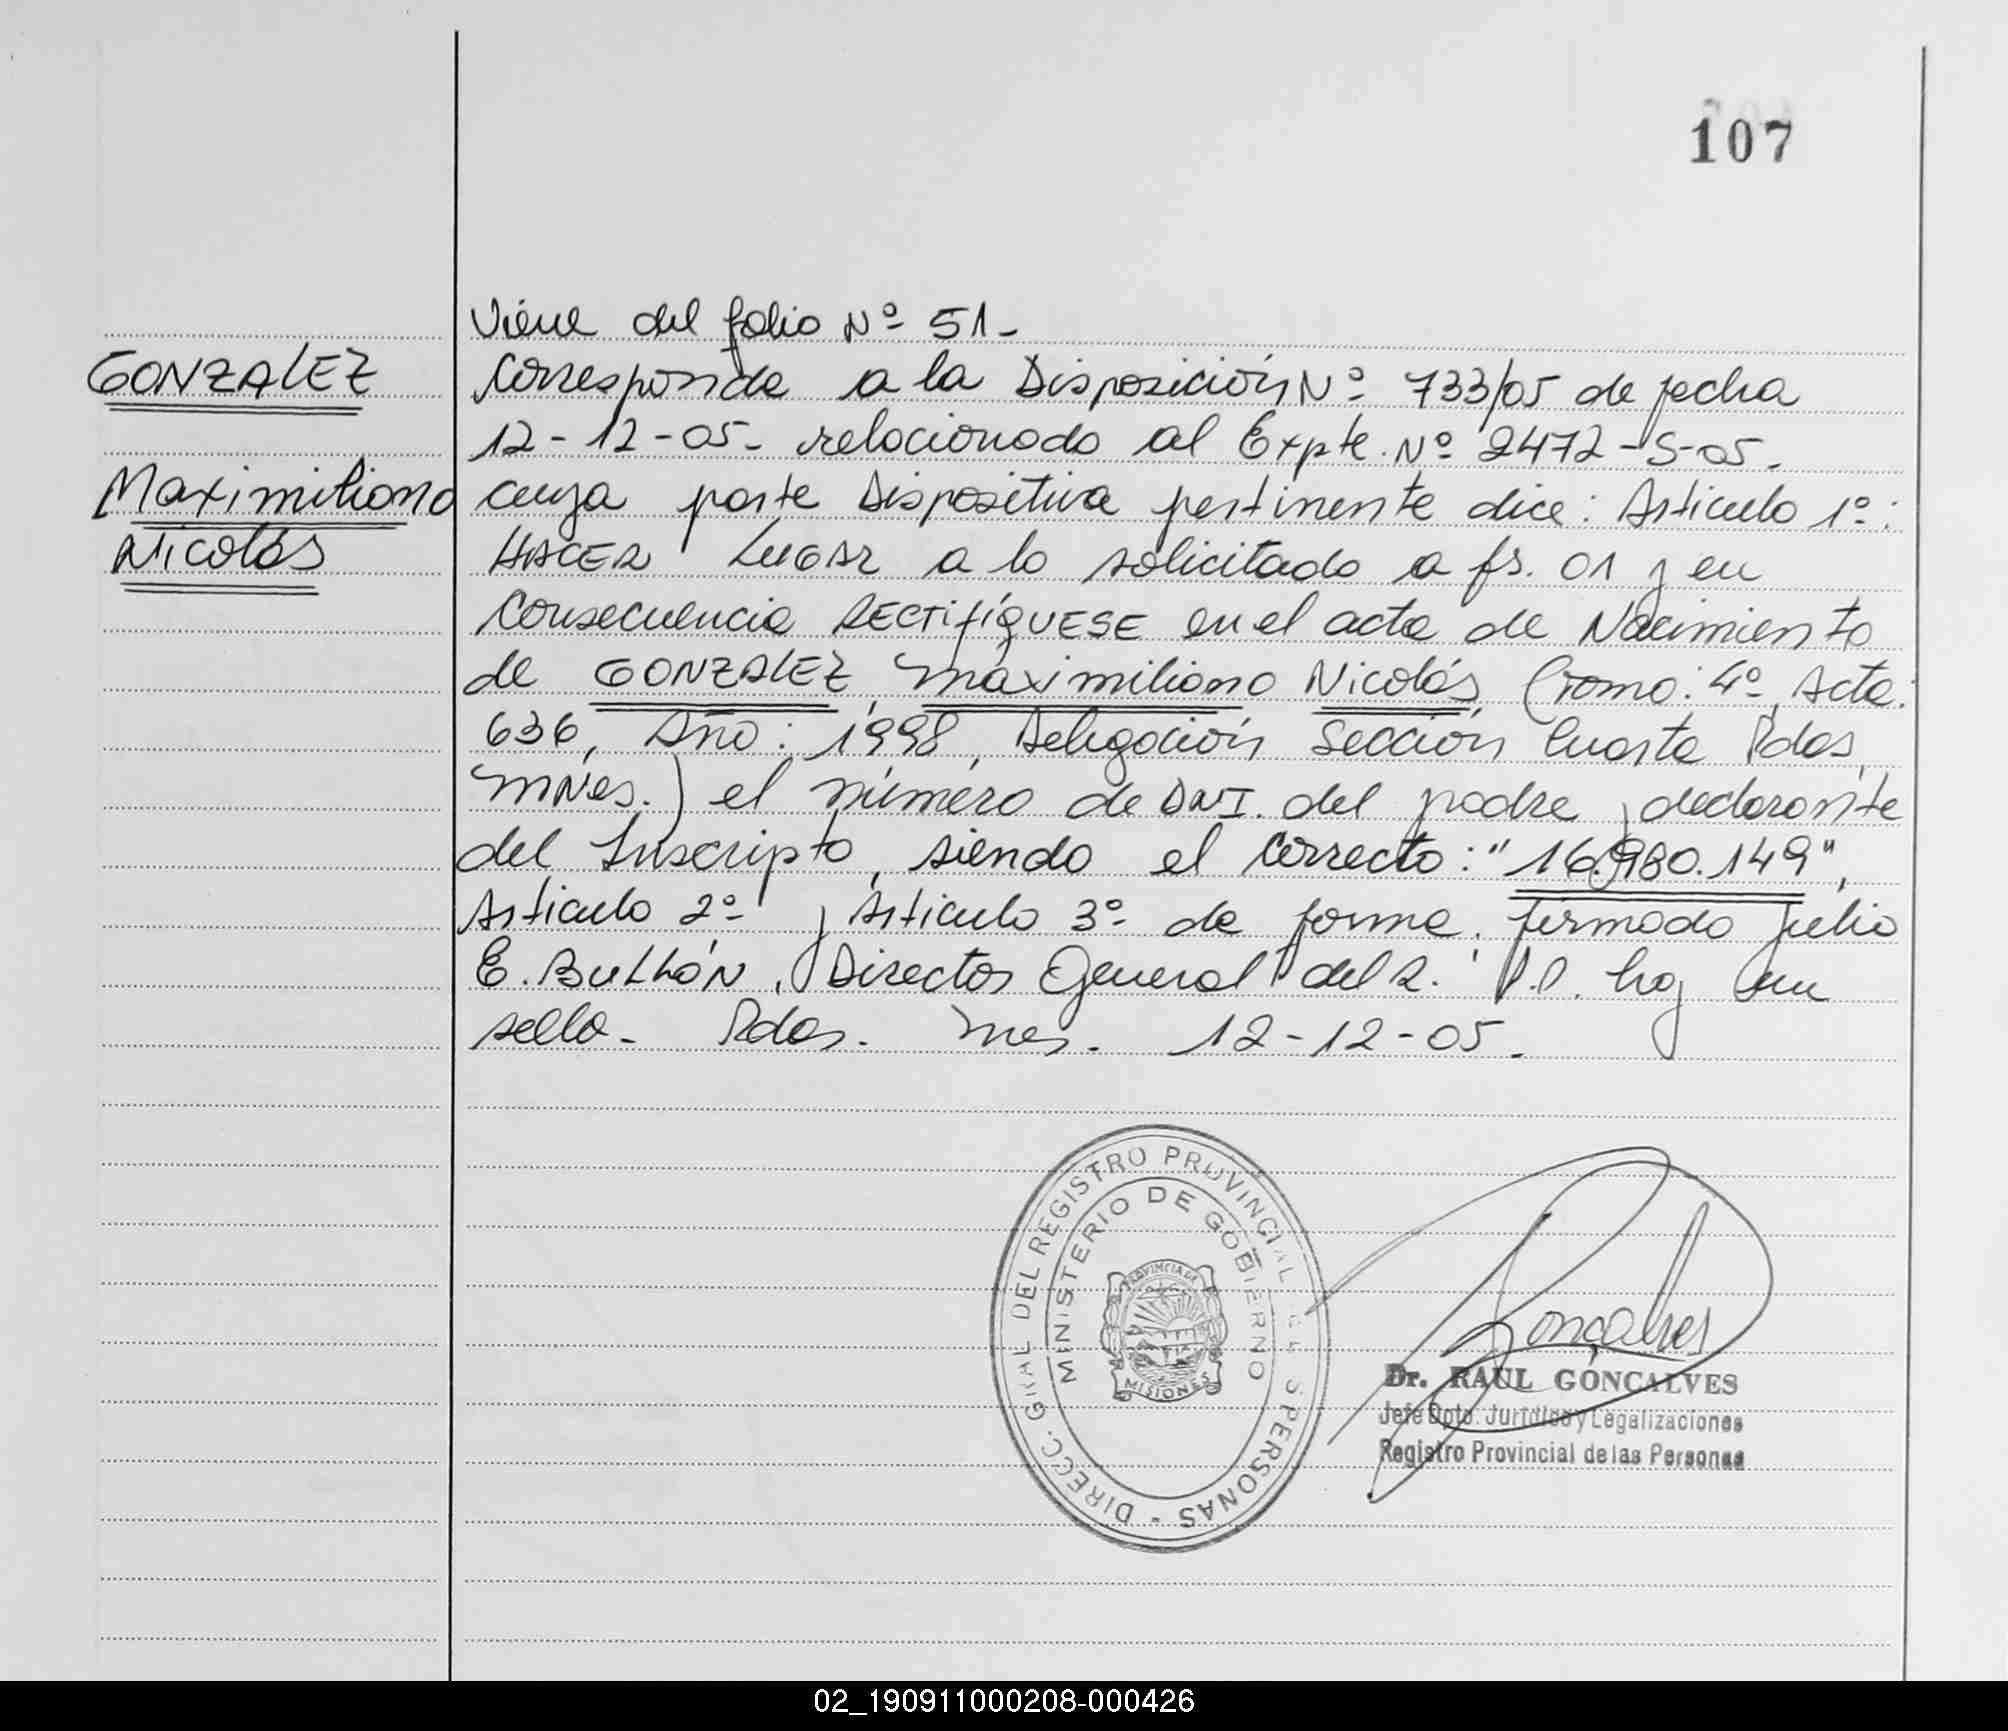 107
GONZALEZ
Maximiliano
Nicolás
Viene del folio Nº 51-
Corresponde a la Disposición Nº 733/05 de fecha
12-12-05- relacionado al Expte. Nº 2472-S-05-
cuya parte Dispositiva pertinente dice: Articulo 1º:
HACER LUGAR a lo solicitado a fs. 01 y en
Consecuencia RECTIFÍQUESE en el acta de Nacimiento
de GONZALEZ, Maximiliano Nicolás, (Tomo: 4º, Acta:
636, Año: 1998, Delegación Sección Cuarta Pdas,
MNes.) el número de DNI. del padre y declarante
del Inscripto, siendo el Correcto: "16.980.149",
Articulo 2º y Articulo 3º de forma. firmado Julio
E. BULLÓN, Director General del R. P.P. hay un
sello- Pdas. Mes. 12-12-05-
DIRECC. GRAL DEL REGISTRO PROVINCIAL DE LAS PERSONAS -
MINISTERIO DE GOBIERNO
PROVINCIA DE
MISIONES
Goncalves
Dr. RAUL GONCALVES
Jefe Dpto. Jurídico y Legalizaciones
Registro Provincial de las Personas
02_190911000208-000426